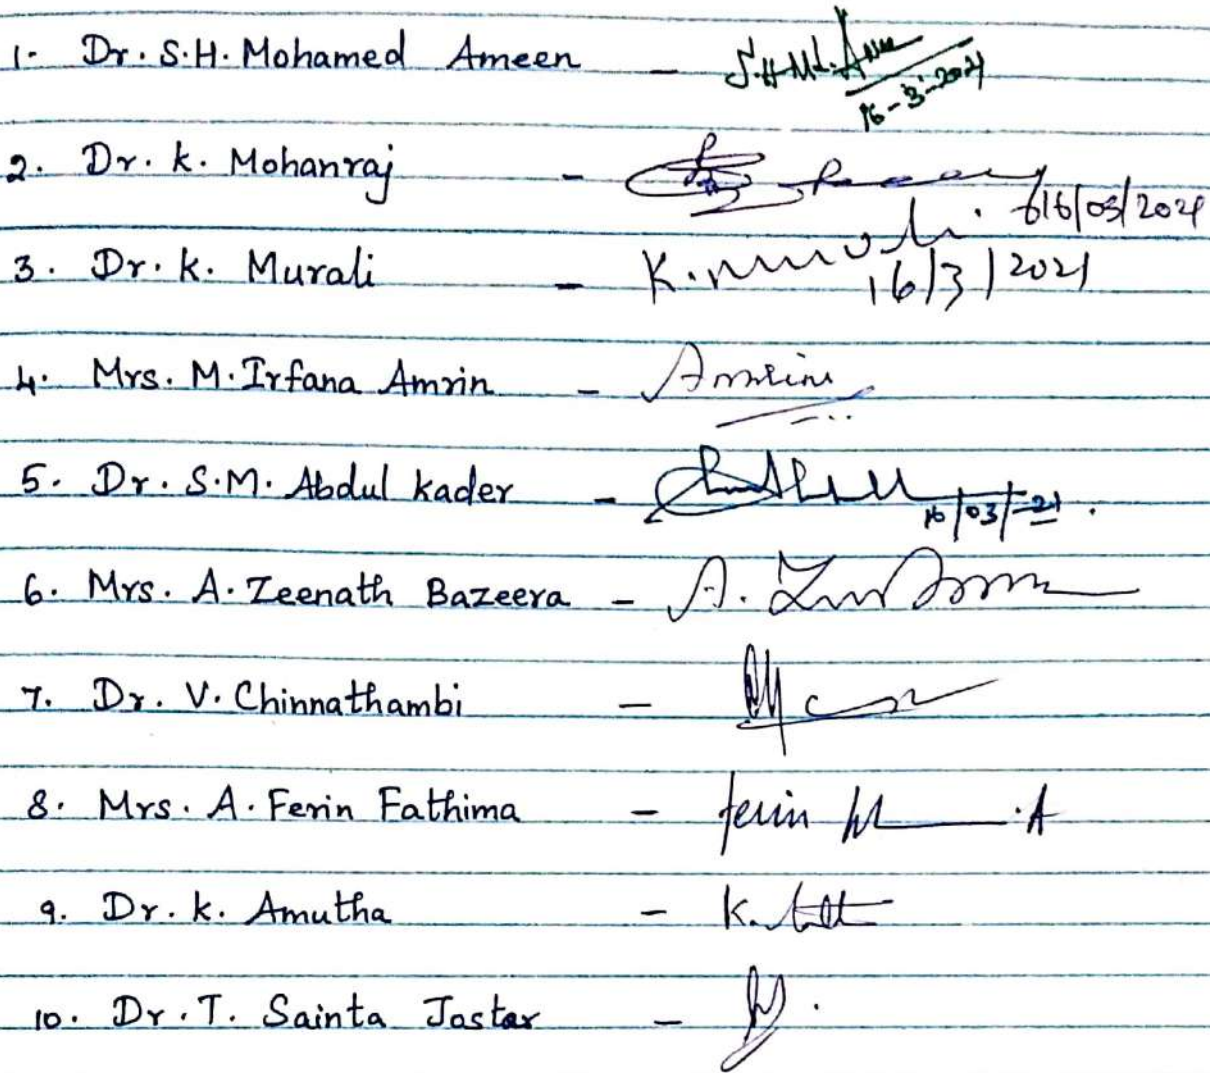 1. Dr. S.H. Mohamed Ameen - S.H.Md. Am
16-3-2021
2. Dr. k. Mohanraj -
16/03/2021
3. Dr. k. Murali - K. Murali
16/3/2021
4. Mrs. M. Irfana Amrin - Amrin
5. Dr. S.M. Abdul kader -
16/03/21.
6. Mrs. A. Zeenath Bazeera - A.
7. Dr. V. Chinnathambi -
8. Mrs. A. Ferin Fathima - ferin .A
9. Dr. k. Amutha - K.
10. Dr. T. Sainta Jostar -